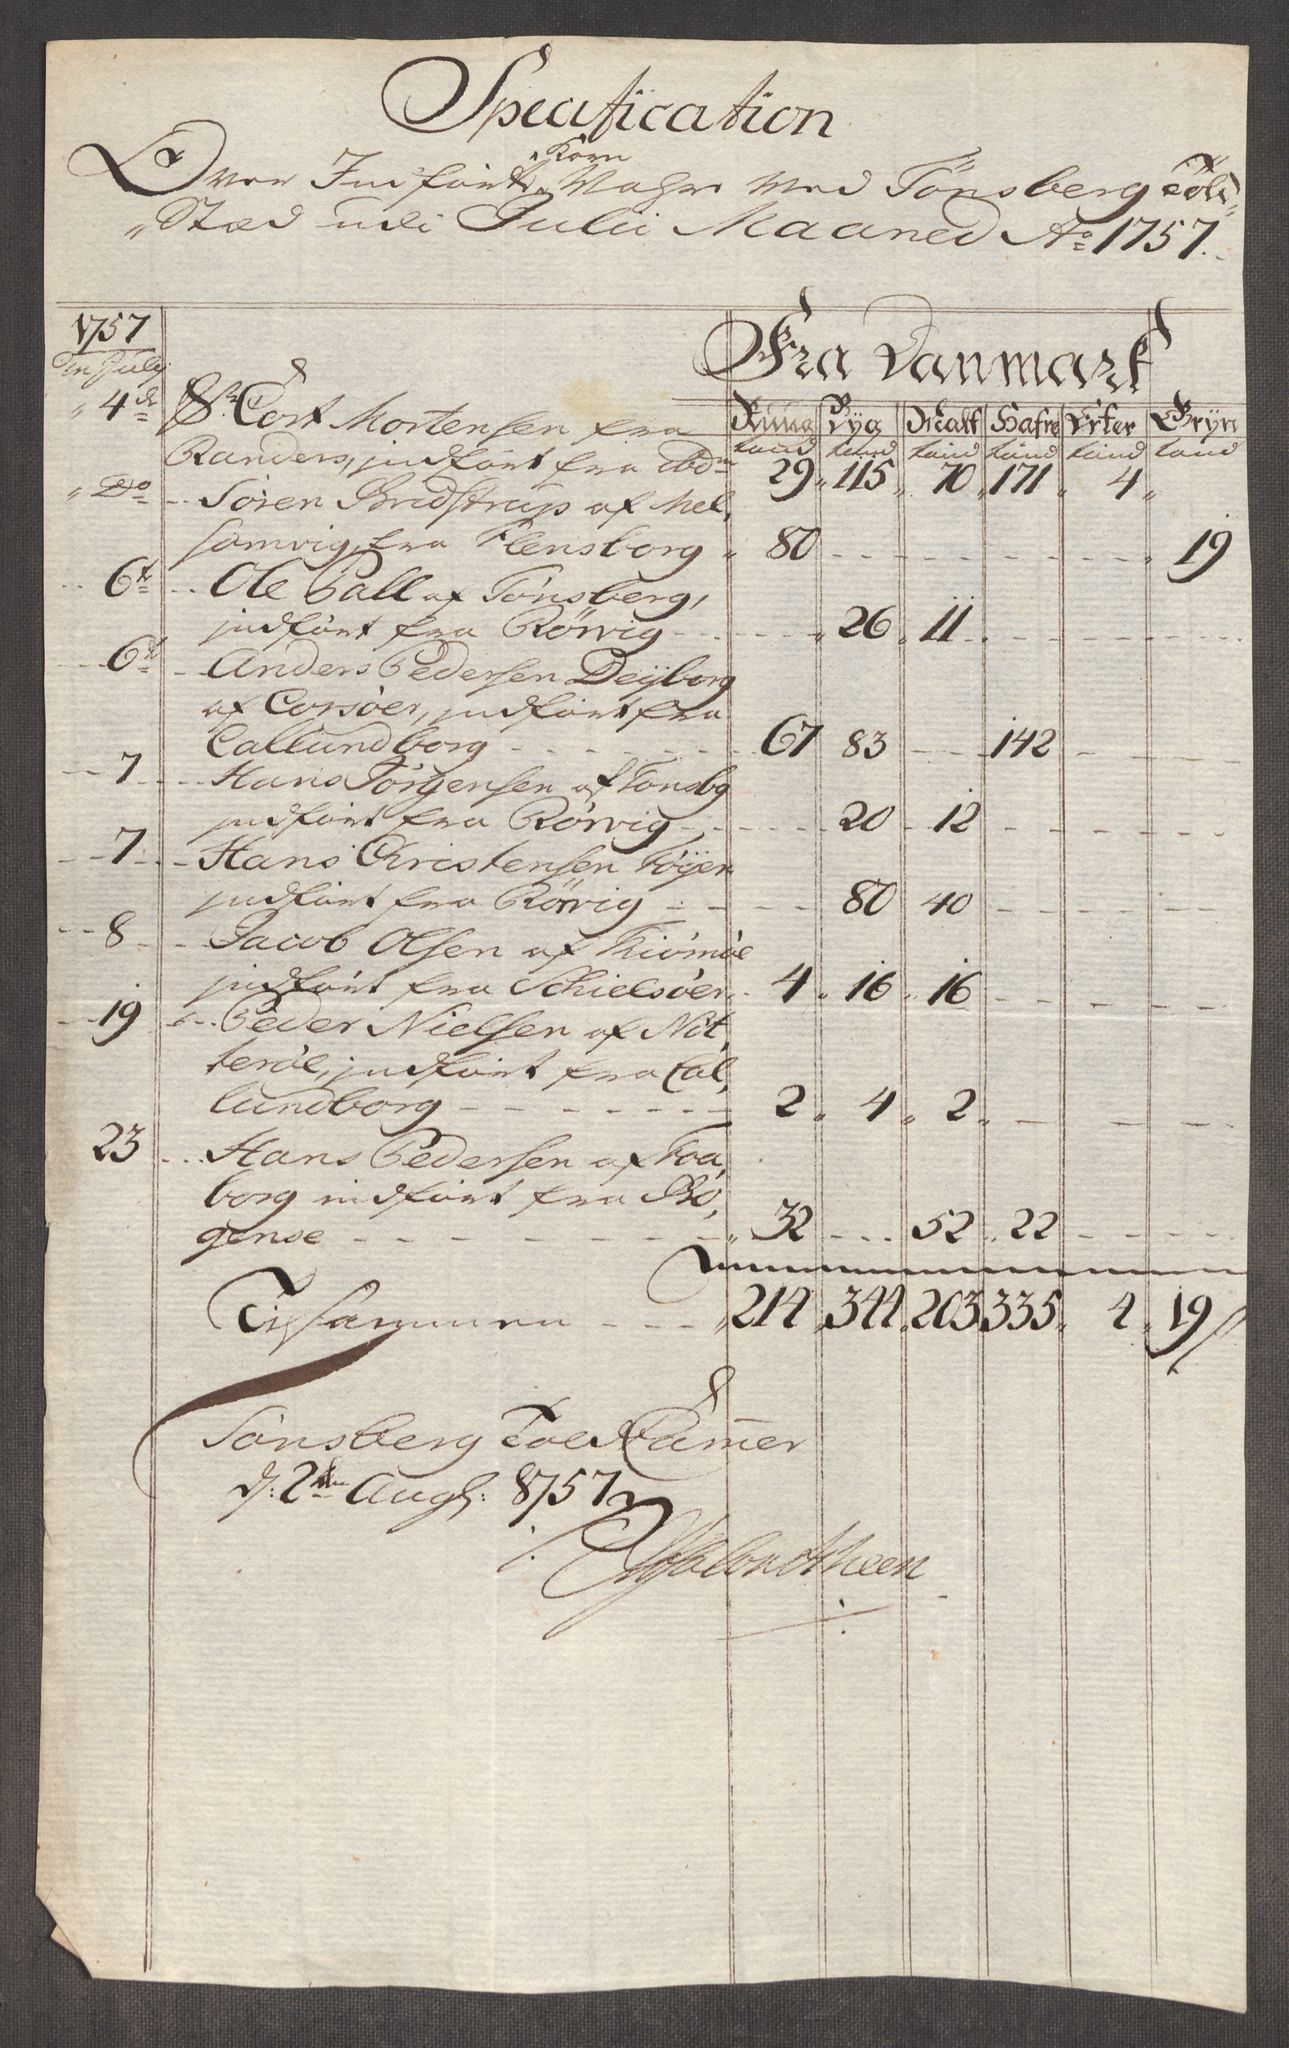 Specification
Over Indførte Korn Vahre ved Tönsberg Told
Stæd udi Julii Maaned Ao 1757.
1757
Fra Danmark
den July
Rug Byg Malt Hafre Erter Gryn
tønd tønd tønd tønd tønd tønd
4de Sr Cort Mortensen fra
Randers, indført fra bdm 29 115 70 171 4
Do Søren Bredstrup af Mel,
somvig, fra Flensborg 80 19
6te Ole Pall af Tønsberg,
indført fra Rörvig 26 11
6te Anders Pedersen Deyborg
af Corsøer, indført fra
Callundborg 67 83 142
7 Hans Jörgensen af Tonsbg
indført fra Rörvig 20 12
7 Hans Christensen Föyen
indført fra Rörvig 80 40
8 Jacob Olsen af Kiömöe
indført fra Schielsöer 4 16 16
19 Peder Nielsen af Nöt,
teröe, indført fra Cal,
lundborg 2 4 2
23 Hans Pedersen af Faa,
borg indført fra Bo,
gense 32 52 22
Tilsammen 214 344 203 335 4 19
Tønsberg Told Camer
d: 2den Augs: 1757